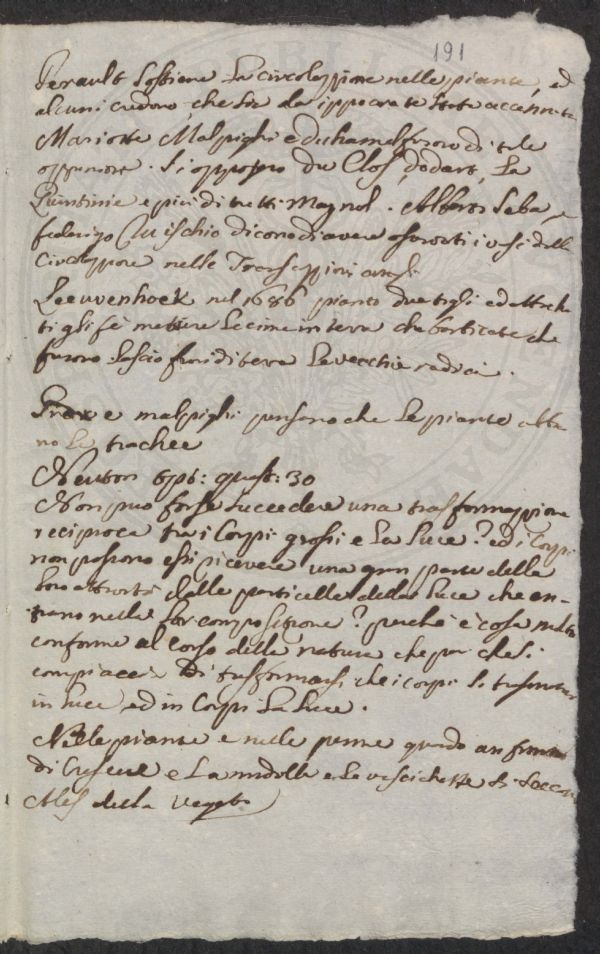 191
Perault sostiene la circolazzione nelle piante, ed
alcuni credono, che sia da ippocrate stata accennata
Mariotte Malpighi e duhamel furono di tale
oppinione. Si opposero du Clos, dodart, La
Quintinie e piu di tutti Magnol. Alberto Seba, e
federigo Ruischio dicono di avere osservati i vasi della
Circolazzione nelle Transazzioni angli
Leeuvenhoek nel 1686 piantò due tigli ed attacha
ti gli fè mettere le cime in terra che barbicate che
furono lasciò fuori di terra le vecchie radici.
Grew e malpighi pensano che le piante abbia
no le trachee
Neuton opt: quest: 30
Non puo forse succedere una trasformazzione
reciproca tra i Corpi grossi e la luce? ed i Corpi
non possono essi ricevere una gran parte della
loro attività dalle particelle della luce che en-
trano nella lor composizione? perchè è cosa molto
conforme al corso della natura che par che si
compiaccia di trasformarsi che i corpi si trasmutino
in luce, ed in Corpi la luce.
Nelle piante e nelle penne quando an finito
di Crescere e la midolla e le vescichette si seccano
della